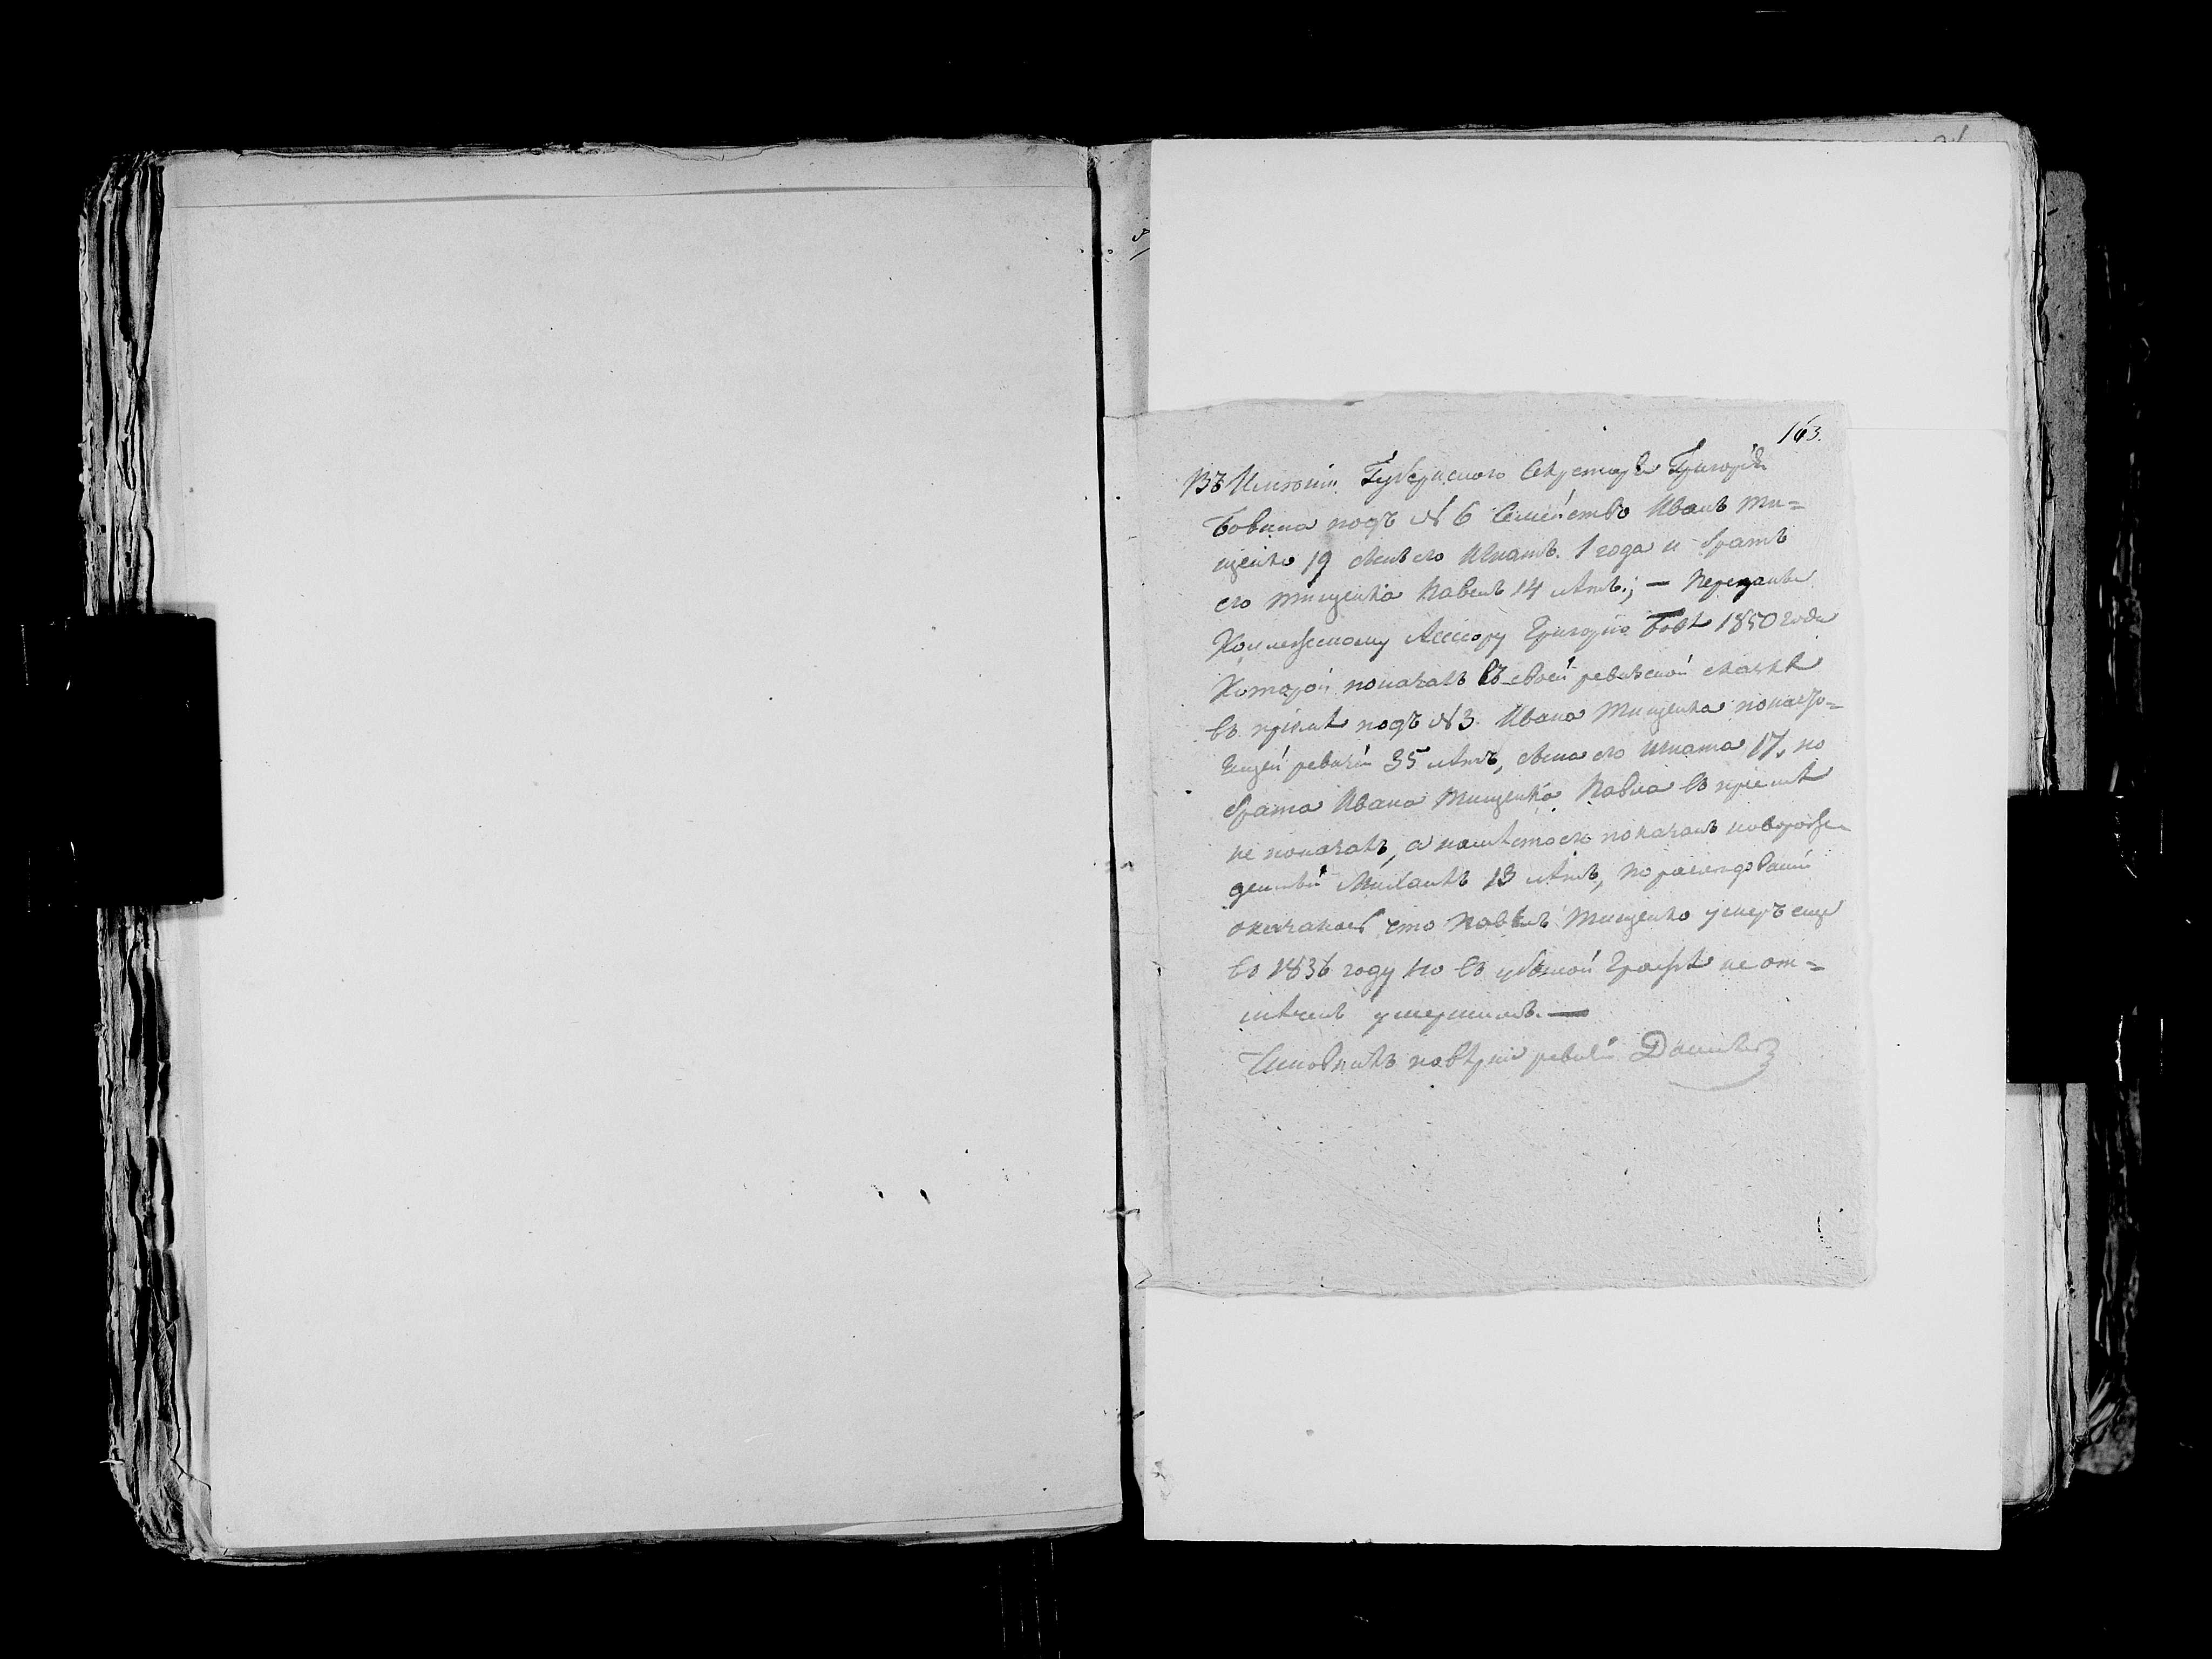 163.
Въ Имѣніи Губернского Секретаря Григорія
Бовина подъ № 6 Семейство Иванъ Ти=
щенко 19 сынъ его Игнатъ 1 года и братъ
его Тищенка Павелъ 14 лѣтъ; — переданы
Коллежскому Ассесору Григорію 1850 года
Которой показалъ въ своей ревизской сказкѣ
въ приемѣ подъ № 3. Ивана Тищенка по настоя=
щей ревизіи 35 лѣтъ, сына его Игната 17, но
брата Ивана Тищенка Павла въ приемѣ
не показалъ, а намѣсто его показанъ новорож
денный Михаилъ 13 лѣтъ, по разслѣдованіи
оказалось что Павелъ Тищенко умеръ еще
въ 1836 году но въ убылой графѣ не от=
мѣченъ умершимъ. —
Чиновникъ повѣрки ревизіи